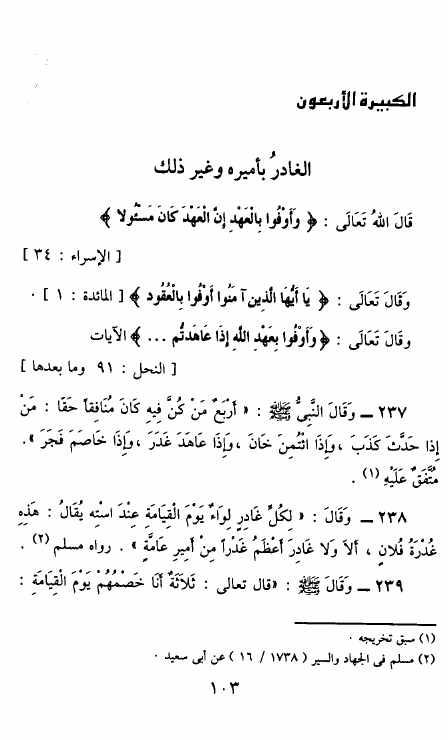 الكبيرة الأربعون
الغادرُ بأميره وغير ذلك
قَالَ اللهُ تَعَالَى : ﴿ وَأَوْفُوا بِالْعَهْدِ إِنَّ الْعَهْدَ كَانَ مَسْئُولا ﴾
[ الإسراء : ٣٤ ]
وَقَالَ تَعَالَى : ﴿ يَا أَيُّهَا الَّذِينَ آمَنُوا أَوْفُوا بِالْعُقُود ﴾ [ المائدة : ١ ] .
وقَالَ تَعَالَى : ﴿ وَأَوْفُوا بِعَهْدِ اللَّهِ إِذَا عَاهَدتُّم ... ﴾ الآيات
[ النحل : ٩١ وما بعدها ]
٢٣٧ ــ وَقَالَ النَّبِيُّ ﷺ : « أَرْبَعٌ مَنْ كُنَّ فِيهِ كَانَ مُنَافِقاً حَقًا : مَنْ
إِذا حَدَّثَ كَذَبَ ، وَإِذَا ائْتُمِنَ خَانَ ، وَإِذَا عَاهَدَ غَدَرَ ، وَإِذَا خَاصَمَ فَجَرَ » .
مُتَّفَقٌ عَلَيْهِ (١) .
٢٣٨ ــ وَقَالَ : « لِكُلِّ غَادِرٍ لِواءٌ يَوْمَ الْقِيَامَةِ عِنْدَ اسْتِه يُقَالُ : هَذِهِ
غُدْرَةُ فُلانٍ ، أَلاَ وَلا غَادِرَ أَعْظَمُ غَدْراً مِنْ أَمِيرِ عَامَّةٍ » . رواه مسلم (٢) .
٢٣٩ ــ وَقَالَ ﷺ : «قال تعالى : ثَلاَثَةٌ أَنَا خَصْمُهُمْ يَوْمَ الْقِيَامَةِ :
(١) سبق تخريجه .
(٢) مسلم فى الجهاد والسير ( ١٧٣٨ / ١٦ ) عن أبى سعيد .
١٠٣